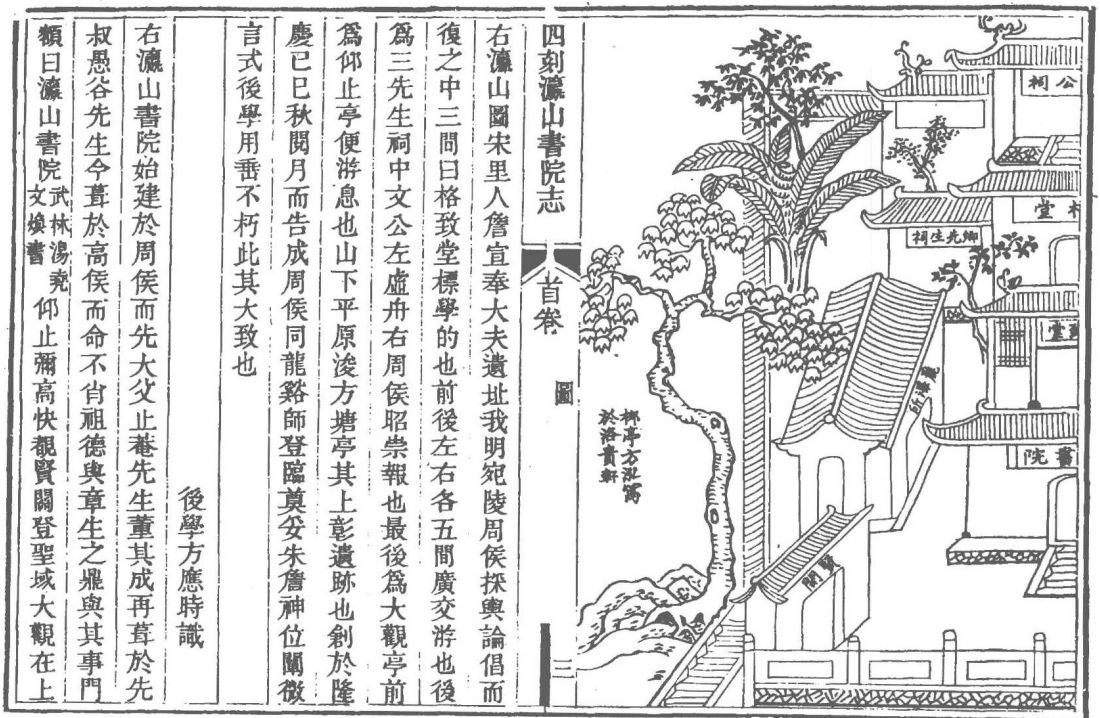 公祠
堂
鄉先生祠
堂
麗澤所
書院
賢關
梛亭方泓寫
於洛賁軒
四刻瀛山書院志
首卷
圖
三
右瀛山圖宋里人詹宣奉大夫遺址我明宛陵周侯採輿論倡而
復之中三間曰格致堂標學的也前後左右各五間廣交游也後
爲三先生祠中文公左虛舟右周侯昭崇報也最後爲大觀亭前
爲仰止亭便游息也山下平原浚方塘亭其上彰遺跡也創於隆
慶己巳秋閱月而告成周侯同龍谿師登臨奠妥朱詹神位闡微
言式後學用垂不朽此其大致也
後學方應時識
右瀛山書院始建於周侯而先大父止菴先生董其成再葺於先
叔愚谷先生今葺於高侯而命不肖祖德與章生之鼎與其事門
額曰瀛山書院武林湯堯文煥書仰止彌高快覩賢關登聖域大觀在上